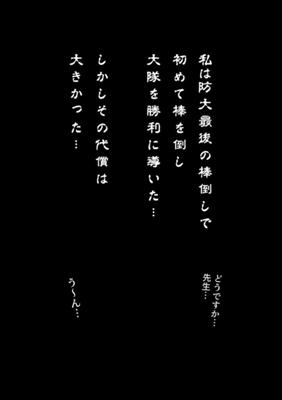 私は防大最後の棒倒しで
初めて棒を倒し
大隊を勝利に導いた…
しかしその代償は
大きかった…
どうですか…
先生…
う～ん…